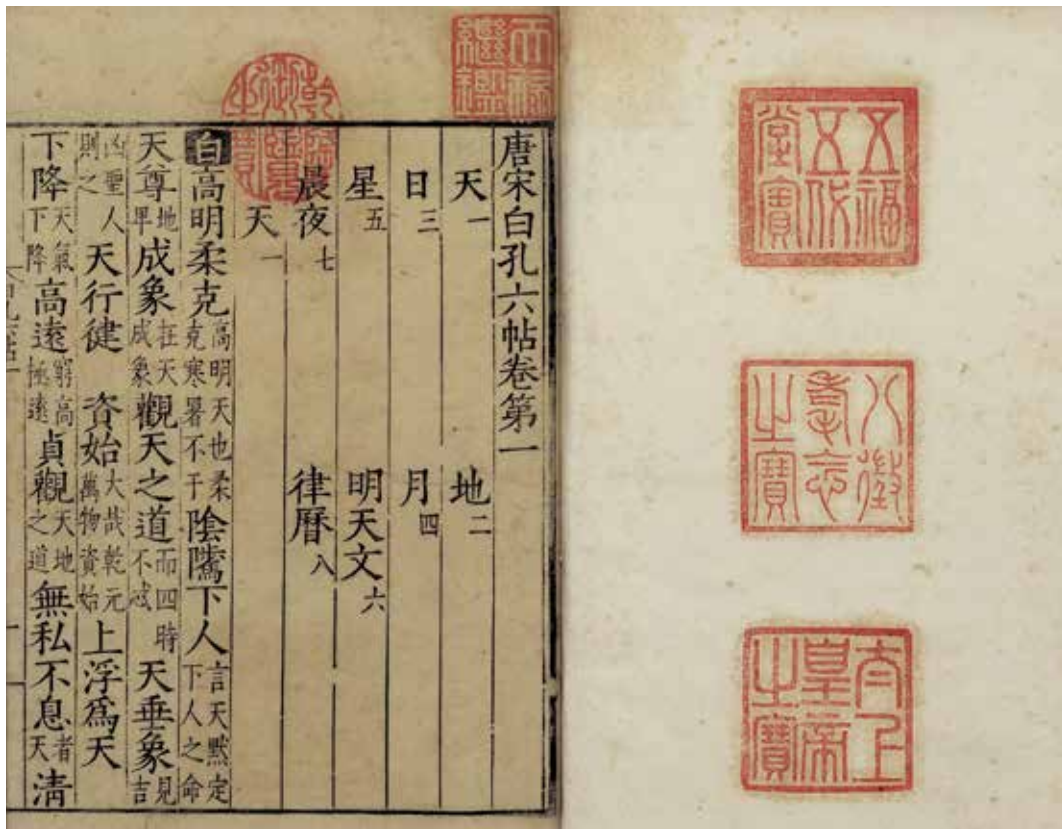 五福五代堂寶
八徵耄念之寶
太上皇帝之寶
天祿繼鑑
乾隆御覽之寶
唐宋白孔六帖卷第一
天一 地二
日三 月四
星五 明天文六
晨夜七 律曆八
天一
白高明柔克高明天也柔克寒暑不干陰騭下人言天默定下人之命
天尊地卑成象在天成象觀天之道而四時不忒天垂象見吉
凶聖人則之天行徤 資始大哉乾元萬物資始上浮爲天
下降天氣下降高遠窮高極遠貞觀天地之道無私不息者天清